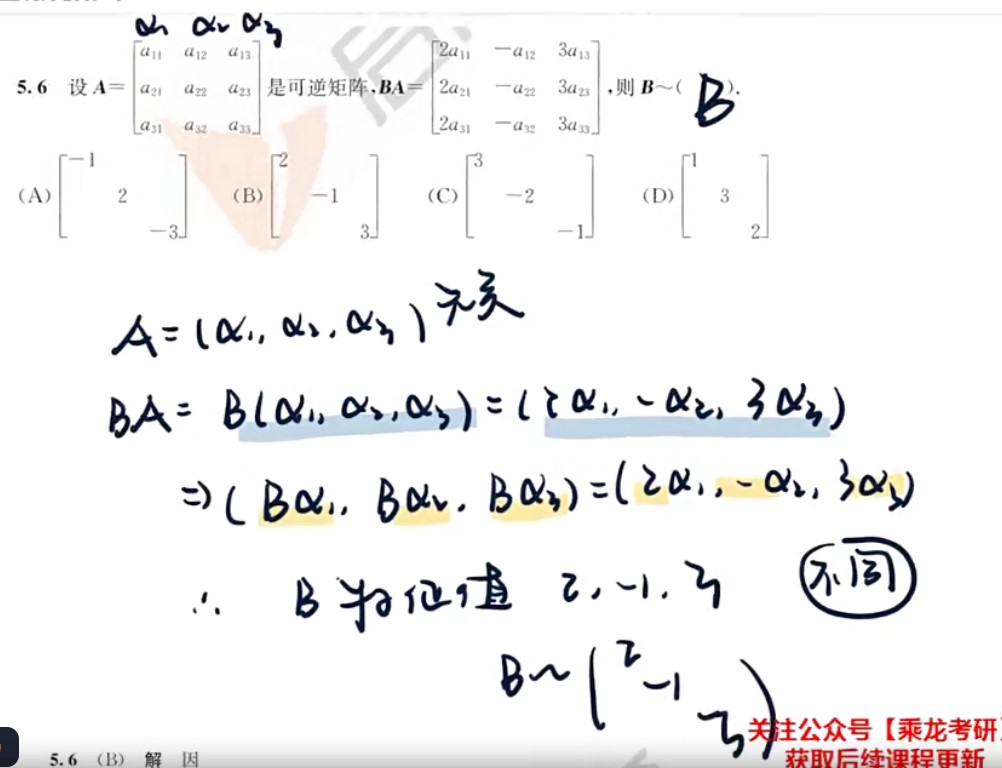 α₁ α₂ α₃
5.6 设 A=[a₁₁ a₁₂ a₁₃; a₂₁ a₂₂ a₂₃; a₃₁ a₃₂ a₃₃]是可逆矩阵,BA=[2a₁₁ −a₁₂ 3a₁₃; 2a₂₁ −a₂₂ 3a₂₃; 2a₃₁ −a₃₂ 3a₃₃],则 B~( B ).
(A)[−1 2 −3] (B)[2 −1 3] (C)[3 −2 −1] (D)[1 3 2]
A=(α₁, α₂, α₃)无关
BA= B(α₁, α₂, α₃)=(2α₁, −α₂, 3α₃)
⇒(Bα₁, Bα₂, Bα₃)=(2α₁, −α₂, 3α₃)
∴ B 特征值 2, −1, 3 不同
B~(2 −1 3)
关注公众号【乘龙考研】
获取后续课程更新
5.6 (B) 解 因